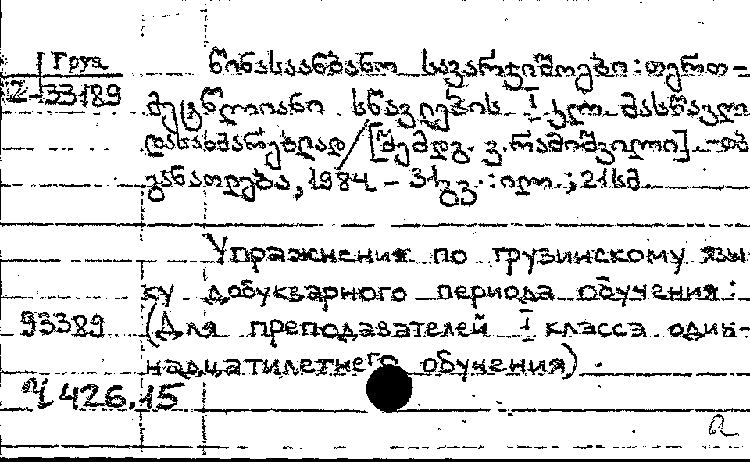 Груз
2-33189
წინასაანბანო სავარჯიშოები: თერთ-
მეტწლიანი სწავლების I კლ. მასწავლ.
დასახმარებლად / [შემდგ. ვ. რამიშვილი]. - თბ.
განათლება, 1984 - 31 გვ. : ილ. ; 21 სმ.
Упражнения по грузинскому язы
ку добукварного периода обучения:
93389 (Для преподавателей I класса один-
надцатилетнего обучения).
Ч 426.15